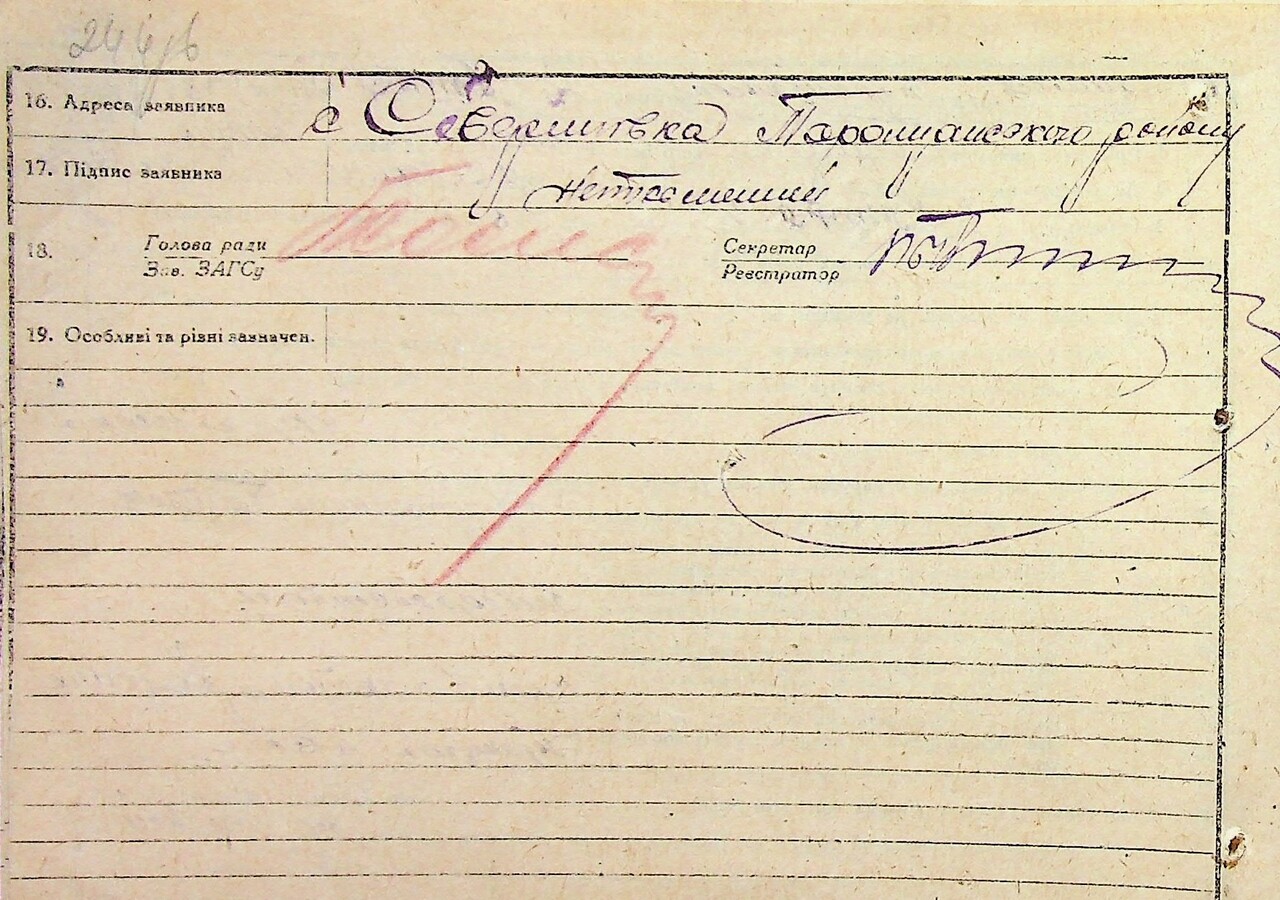 16. Адреса заявника с Северинівка Таращанського району
17. Підпис заявника неписьменний
18. Голова ради Секретар
Зав. ЗАГСу Реєстратор
19. Особливі та рівні зазначен.